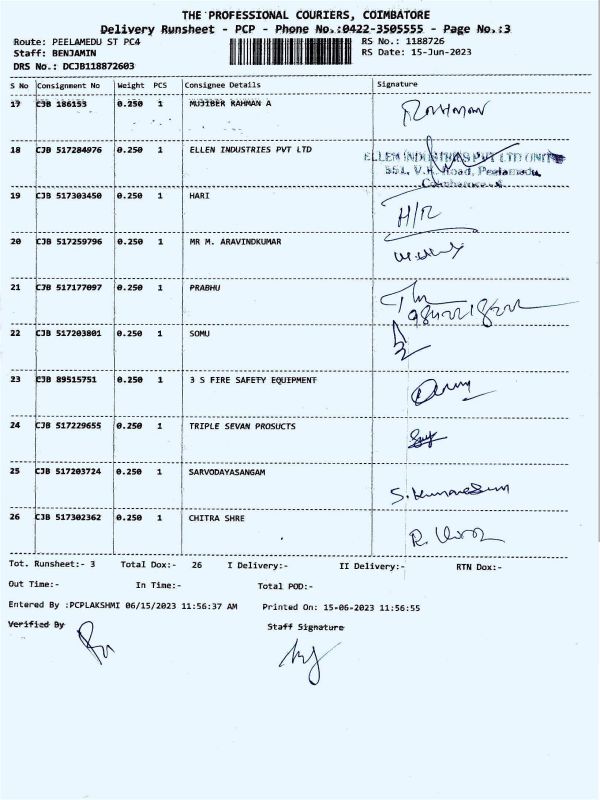 THE PROFESSIONAL COURIERS, COIMBATORE
Delivery Runsheet - PCP - Phone No.:0422-3505555 - Page No.:3
Route: PEELAMEDU ST PC4 RS No.: 1188726
Staff: BENJAMIN RS Date: 15-Jun-2023
DRS No.: DCJB118872603
S No Consignment No Weight PCS Consignee Details Signature
17 CJB 186153 0.250 1 MUJIBER RAHMAN A
18 CJB 517284976 0.250 1 ELLEN INDUSTRIES PVT LTD
ELLEN INDUSTRIES PVT LTD UNIT
551, V.K. Road, Peelamedu,
Coimbatore-4
19 CJB 517303450 0.250 1 HARI H/R
20 CJB 517259796 0.250 1 MR M. ARAVINDKUMAR
21 CJB 517177097 0.250 1 PRABHU
22 CJB 517203801 0.250 1 SOMU
23 CJB 89515751 0.250 1 3 S FIRE SAFETY EQUIPMENT
24 CJB 517229655 0.250 1 TRIPLE SEVAN PROSUCTS
25 CJB 517203724 0.250 1 SARVODAYASANGAM
26 CJB 517302362 0.250 1 CHITRA SHRE
Tot. Runsheet:- 3 Total Dox:- 26 I Delivery:- II Delivery:- RTN Dox:-
Out Time:- In Time:- Total POD:-
Entered By :PCPLAKSHMI 06/15/2023 11:56:37 AM Printed On: 15-06-2023 11:56:55
Verified By Staff Signature